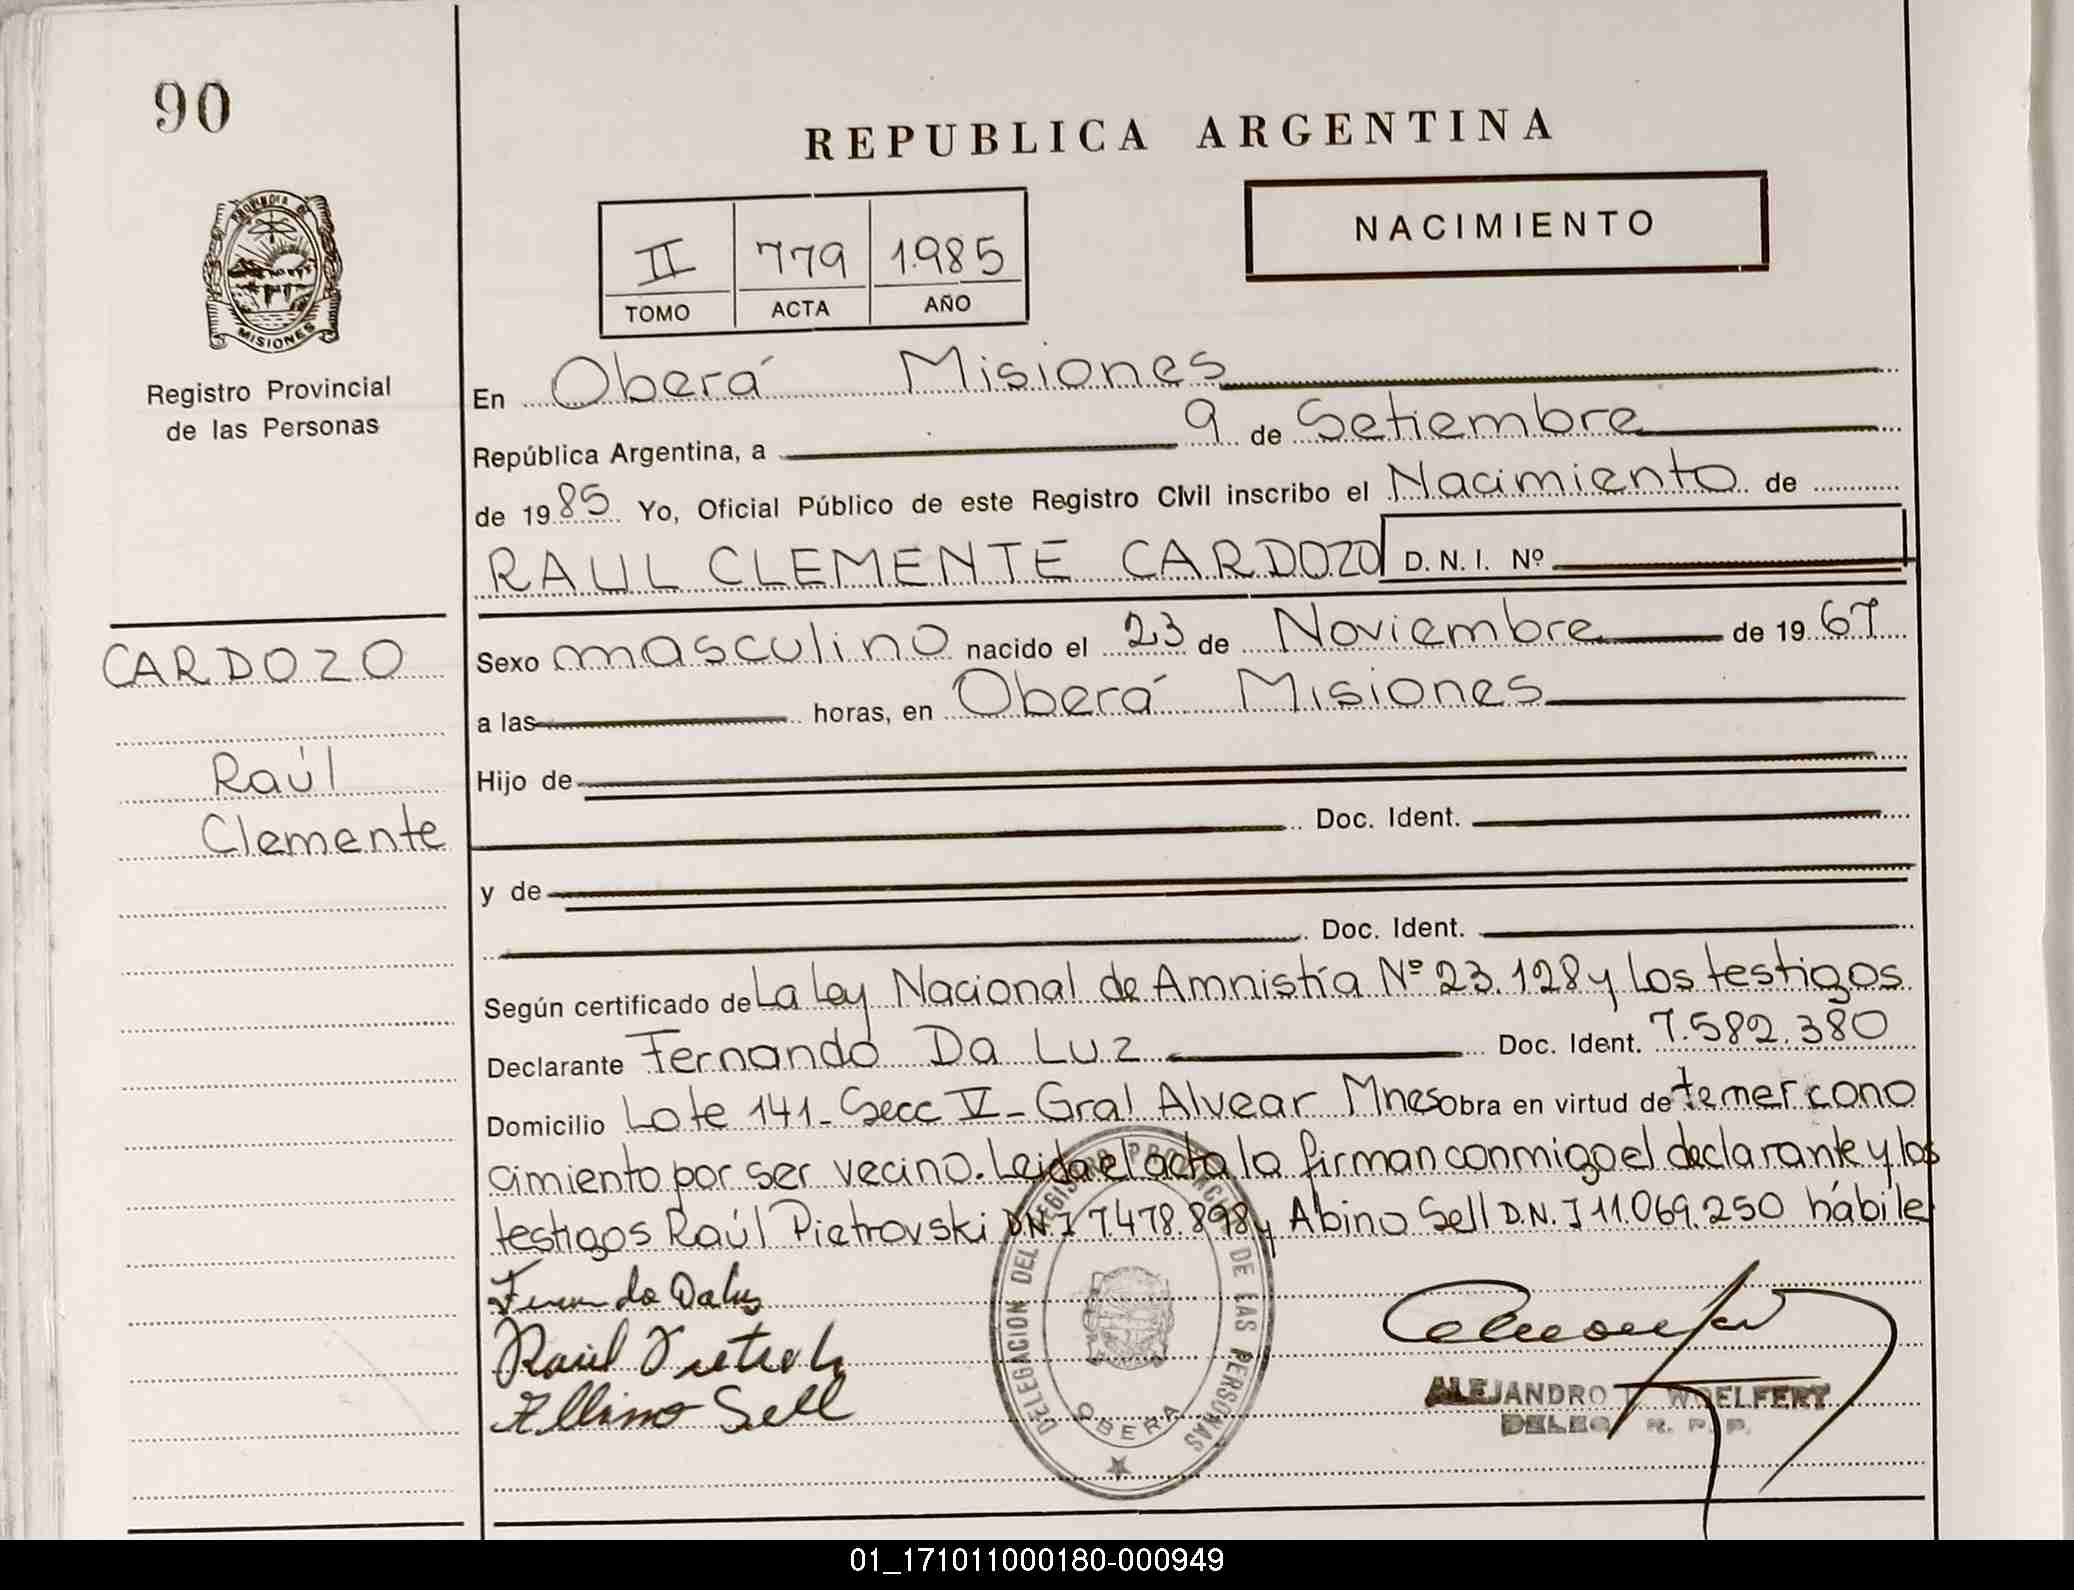 90
REPUBLICA ARGENTINA
PROVINCIA DE
MISIONES
Registro Provincial
de las Personas
II 779 1985
TOMO ACTA AÑO
NACIMIENTO
En Oberá Misiones
República Argentina, a 9 de Setiembre
de 1985 Yo, Oficial Público de este Registro Civil inscribo el Nacimiento de
RAUL CLEMENTE CARDOZO D. N. I. Nº
CARDOZO
Raúl
Clemente
Sexo masculino nacido el 23 de Noviembre de 1967
a las horas, en Oberá Misiones
Hijo de
Doc. Ident.
y de
Doc. Ident.
Según certificado de La Ley Nacional de Amnistía Nº 23.128 y los testigos
Declarante Fernando Da Luz Doc. Ident. 7.582.380
Domicilio Lote 141- Secc V- Gral Alvear Mnes obra en virtud de temer cono
cimiento por ser vecino. Leida el acta la firman conmigo el declarante y los
testigos Raúl Pietrovski D.N.I 7.478.898 y Abino Sell D.N.I 11.069.250 hábile
DELEGACION DEL REGISTRO PROVINCIAL DE LAS PERSONAS
OBERA
Raúl
Sell
ALEJANDRO WOELFERT
DELEG. R. P. P.
01_171011000180-000949